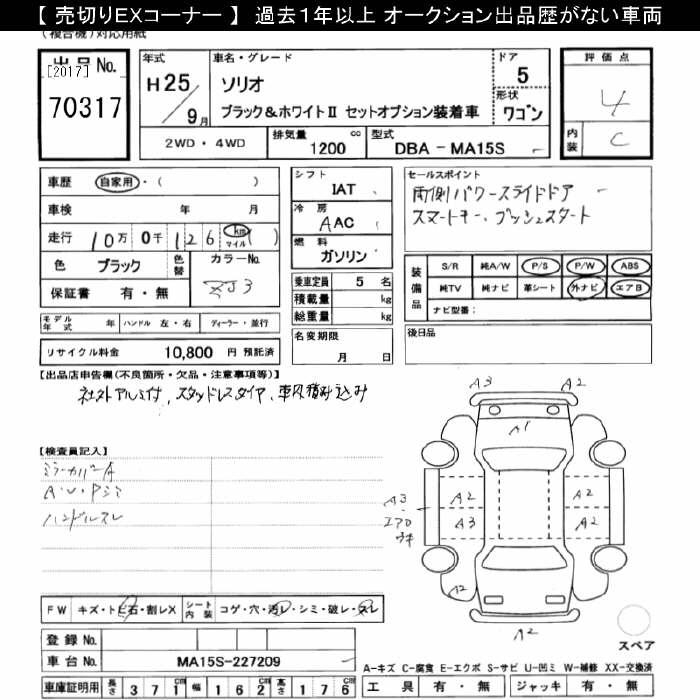 【 売切りEXコーナー 】 過去1年以上 オークション出品歴がない車両
(複合機)対応用紙
出品No.
[2017]
70317
年式
H25/9月
車名・グレード
ソリオ
ブラック&ホワイトⅡ セットオプション装着車
ドア
5
形状
ワゴン
評価点
4
内装
C
2WD・4WD
排気量
1200 cc
型式
DBA - MA15S
車歴 自家用・( )
車検 年 月
走行 10万 0千 126 km マイル ( )
色 ブラック 色替 カラーNo.
ZJ3
保証書 有・無
シフト
IAT
冷房
AAC
燃料
ガソリン
乗車定員 5 名
積載量 kg
総重量 kg
名変期限
月 日
セールスポイント
両側パワースライドドア
スマートキー、プッシュスタート
装備品
S/R 純A/W P/S P/W ABS
純TV 純ナビ 革シート 外ナビ エアB
ナビ型番:
後日品
モデル年式 年 ハンドル 左・右 ディーラー・並行
リサイクル料金 10,800 円 預託済
【出品店申告欄(不良箇所・欠品・注意事項等)】
社外アルミ付、スタッドレスタイヤ、車内積み込み
【検査員記入】
ミラーカバーA
A・U・Pシミ
ハンドルスレ
A3 A2
A1
A3
エアロ
A2 A2
A3 A2
A2
A2
スペア
FW キズ・トビ石・割レX シート内装 コゲ・穴・汚レ・シミ・破レ・スレ
登録No.
車台No. MA15S-227209
A-キズ C-腐食 E-エクボ S-サビ U-凹ミ W-補修 XX-交換済
車庫証明用 長さ 371 幅 162 高さ 176
工具 有・無 ジャッキ 有・無